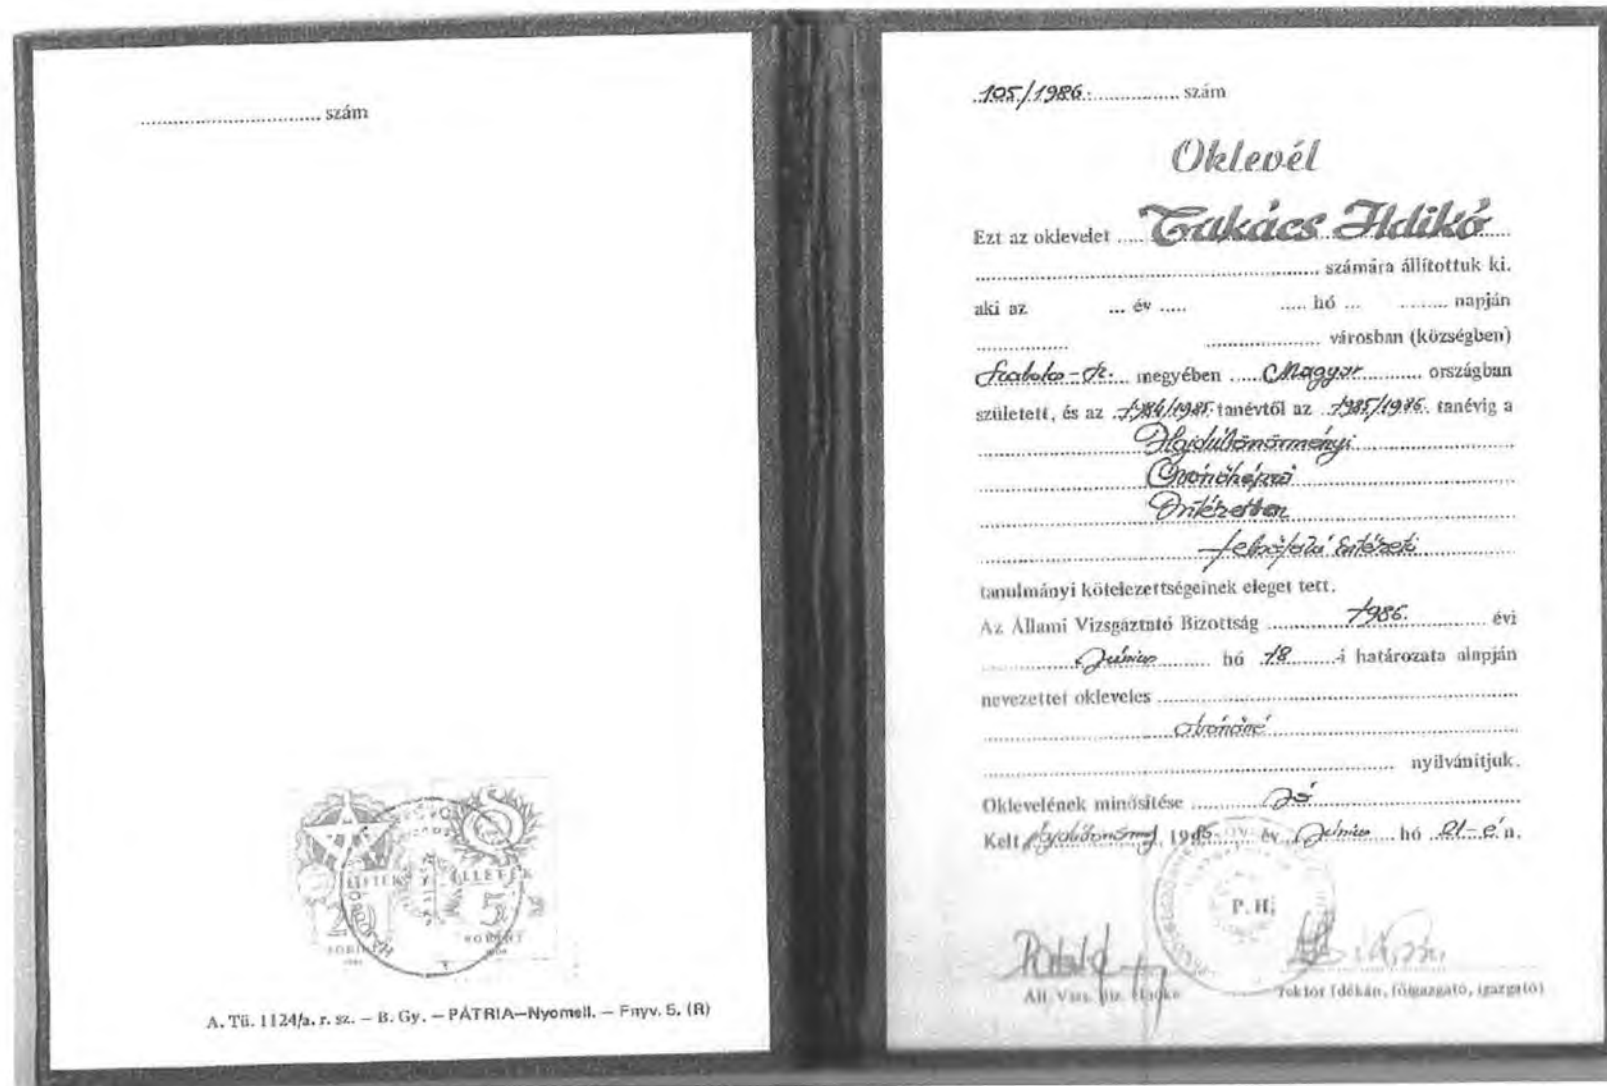 szám
ILLETÉK
ILLETÉK
5
FORINT
A. Tü. 1124/a. r. sz. – B. Gy. – PÁTRIA–Nyomell. – Fnyv. 5. (R)
105/1986. szám
Oklevél
Ezt az oklevelet Takács Ildikó
számára állítottuk ki.
aki az év hó napján
városban (községben)
Szabolcs-Sz. megyében Magyar országban
született, és az 1984/1985. tanévtől az 1985/1986. tanévig a
Hajdúböszörményi
Óvónőképző
Intézetben
felsőfokú intézeti
tanulmányi kötelezettségeinek eleget tett.
Az Állami Vizsgáztató Bizottság 1986. évi
Június hó 18 -i határozata alapján
nevezettet okleveles
óvónőnő
nyilvánítjuk.
Oklevelének minősítése Jó
Kelt 1986 év Június hó 21-én.
P. H.
Áll. Vizs. Biz. elnöke
rektor (dékán, főigazgató, igazgató)